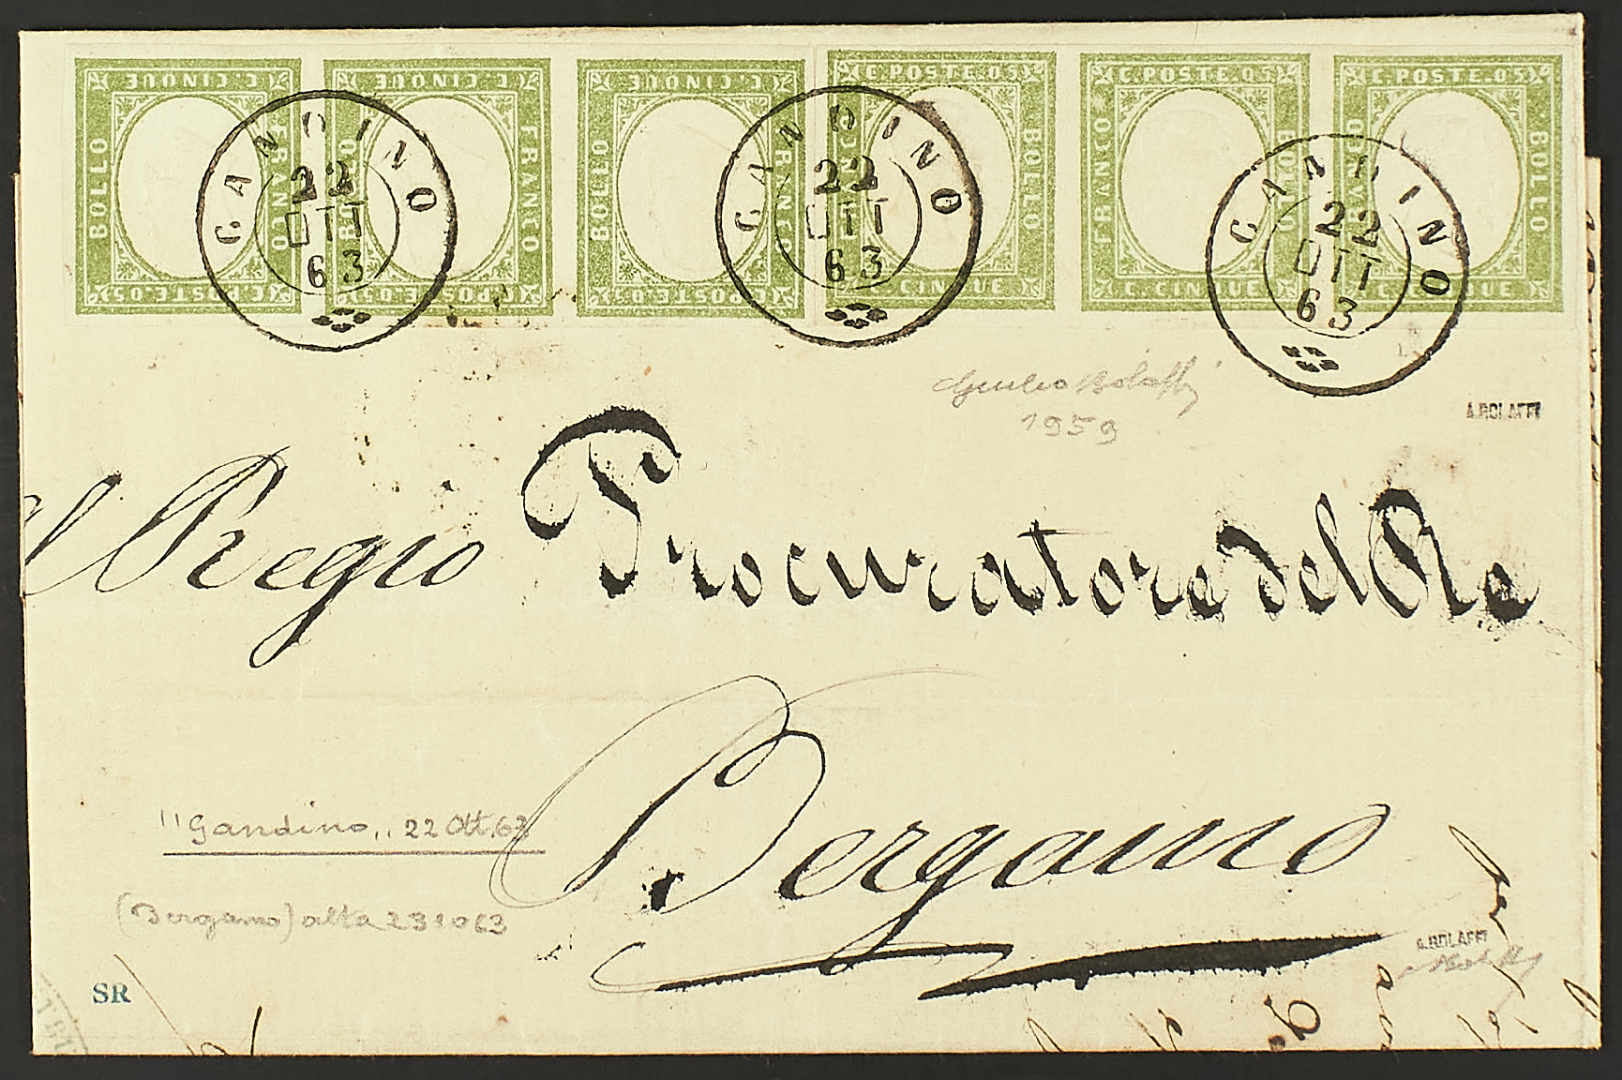 C. CINQUE C. CINQUE C. CINQUE C. POSTE. 05 C. POSTE. 05 C. POSTE. 05
BOLLO FRANCO BOLLO FRANCO BOLLO FRANCO FRANCO BOLLO FRANCO BOLLO FRANCO BOLLO
C. POSTE. 05 C. POSTE. 05 C. POSTE. 05 C. CINQUE C. CINQUE C. CINQUE
GANDINO
22
OTT
63
GANDINO
22
OTT
63
GANDINO
22
OTT
63
Giulio Bolaffi
1959
A. BOLAFFI
Al Regio Procuratore del Re
Bergamo
"Gandino„ 22 Ott. 63
(Bergamo) alta 231063
A. BOLAFFI
SR